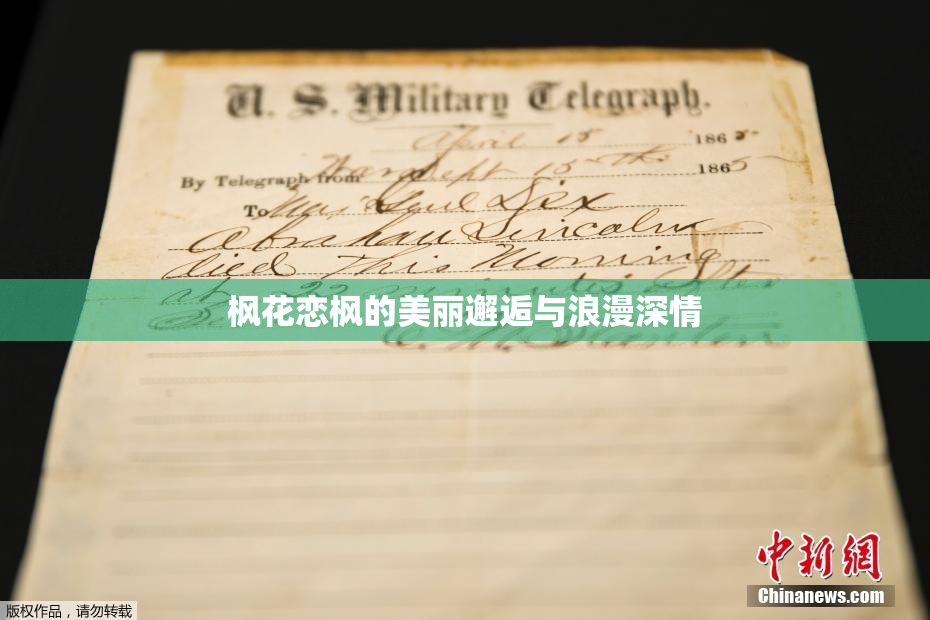 U. S. Military Telegraph.
April 15 1865
By Telegraph from War Dept 15th 1865
To Maj Genl Dix
Abraham Lincoln
died This Morning
at 22 minutes after
枫花恋枫的美丽邂逅与浪漫深情
E. M. Stanton
中新网
Chinanews.com
版权作品，请勿转载